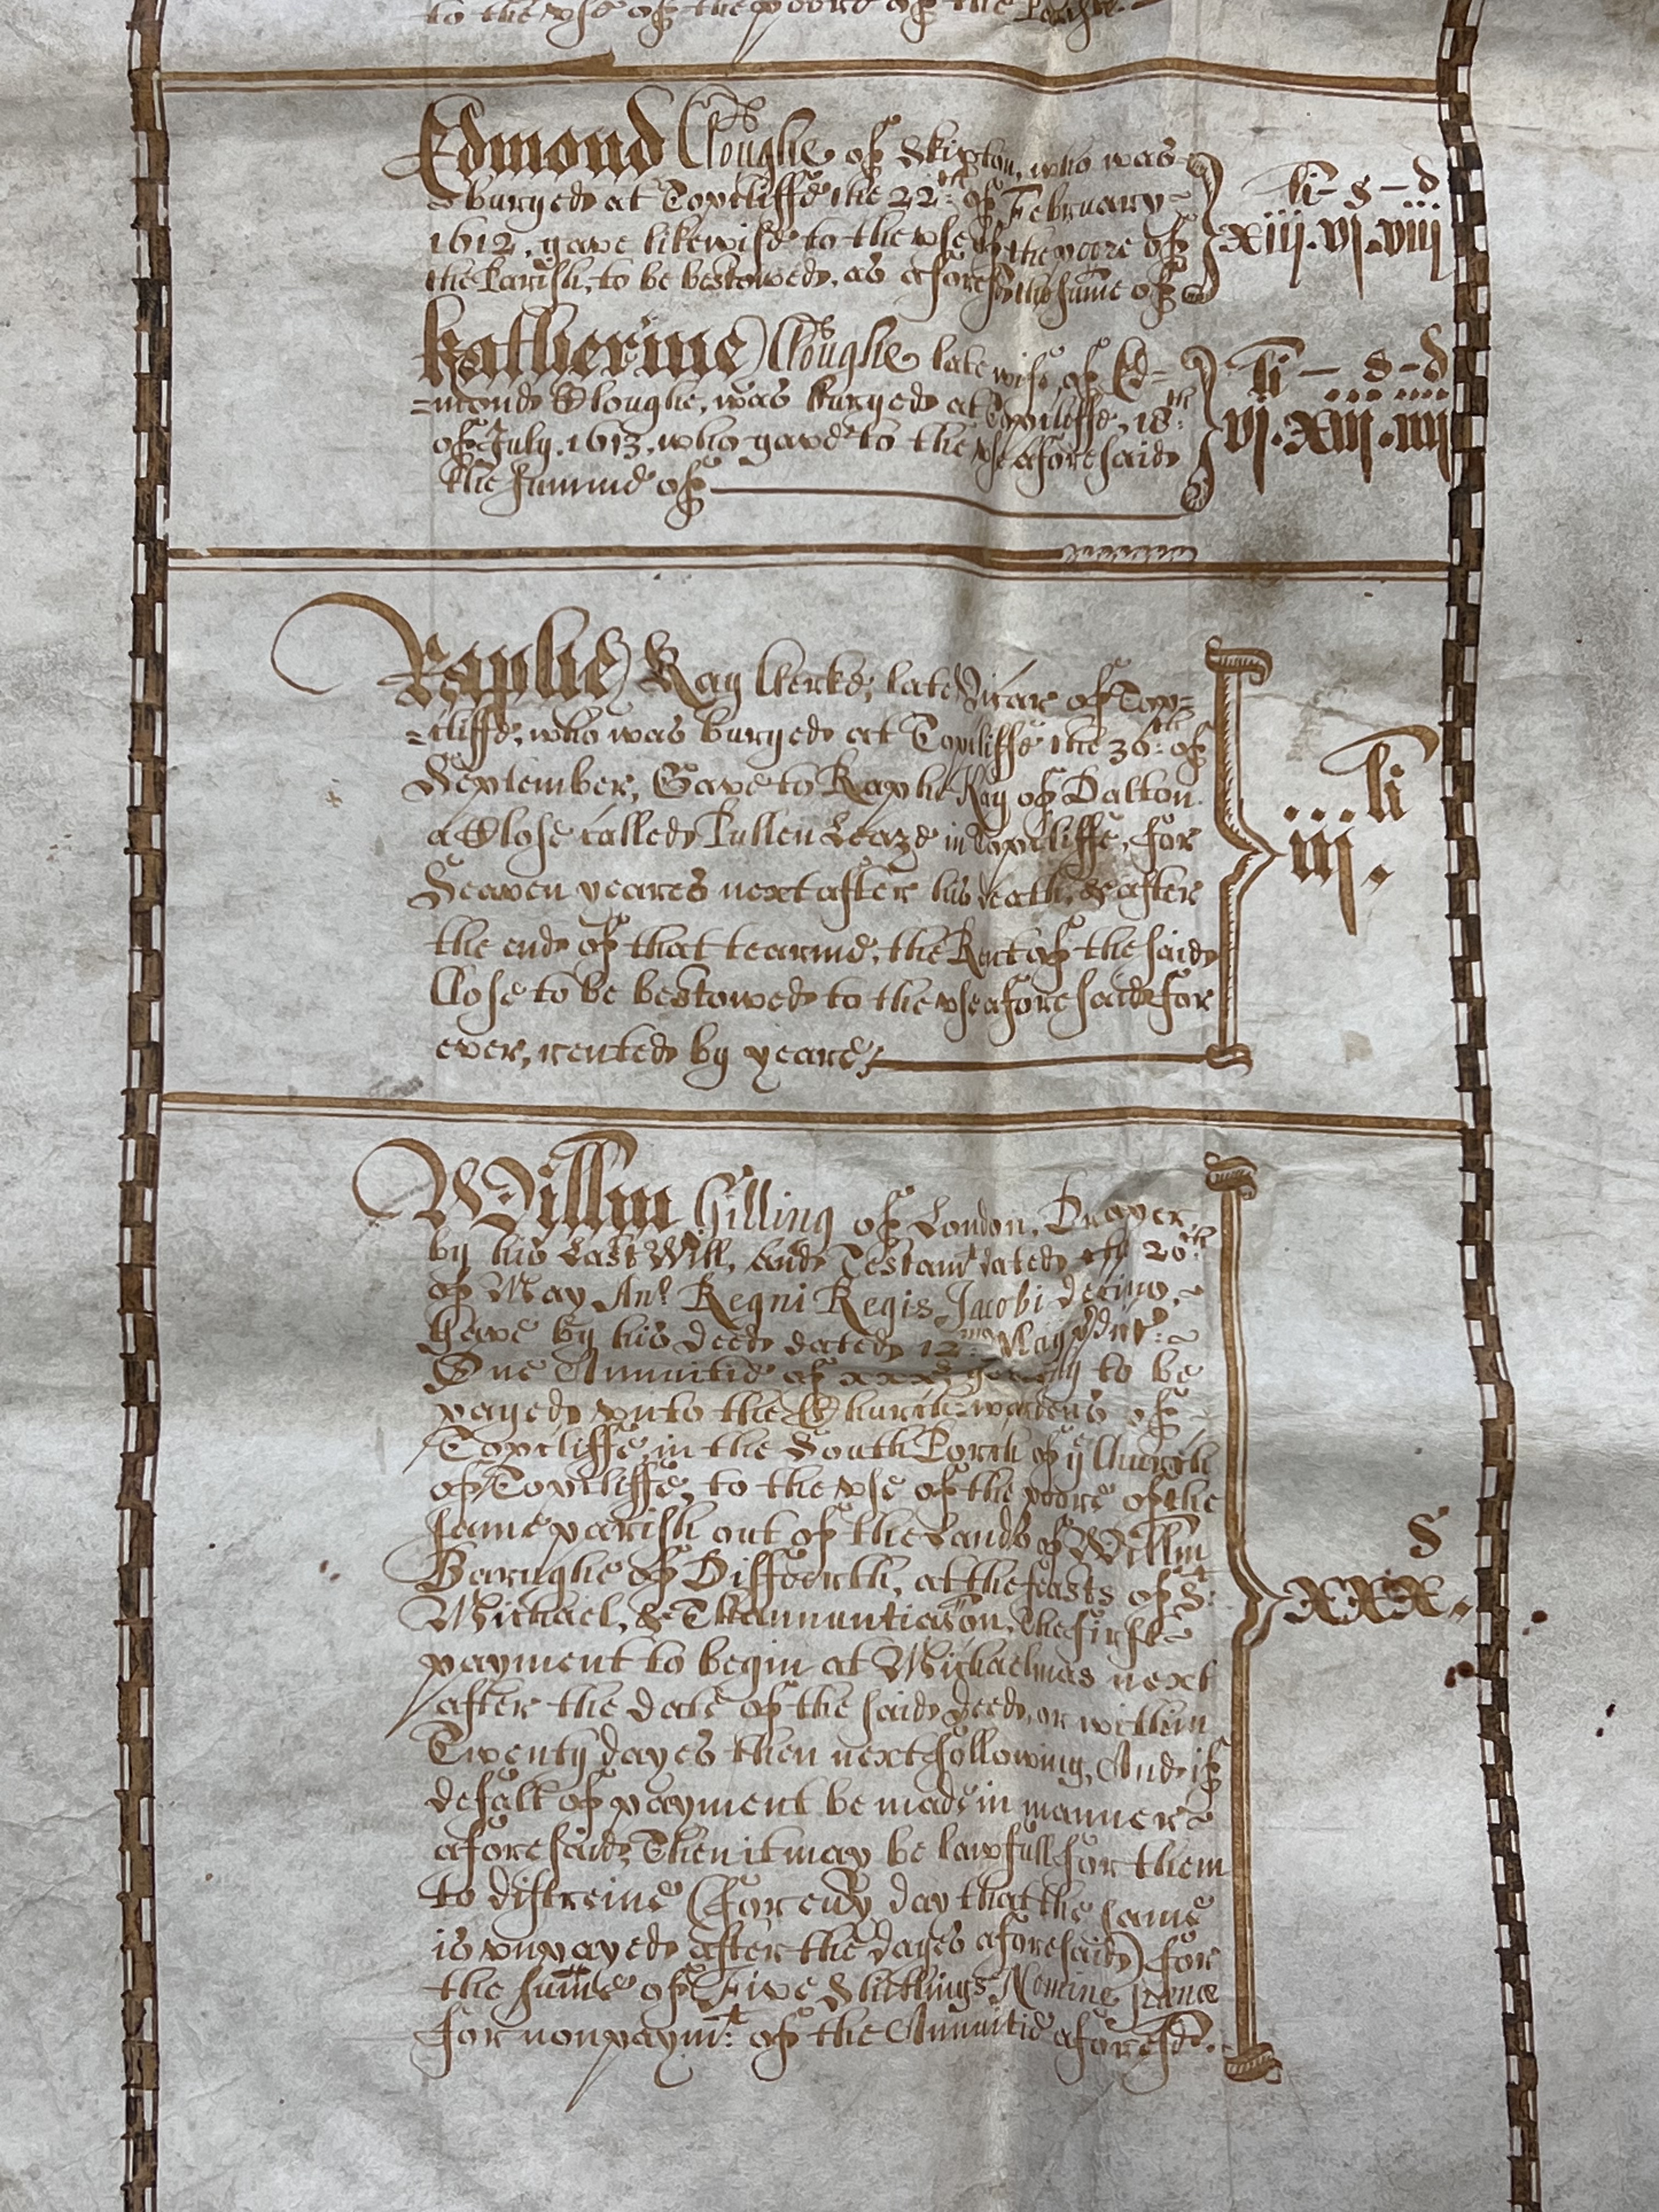 to the vse of the poore of the Parish.
Edmond Cloughe of Skipton, who was
buryed at Topcliffe the 22th of February
1612, gave likewise to the vse of the poore of
the Parish, to be bestowed, as aforesd the sume of
li - s - d
xiij . vj . viij
Katherine Cloughe late wife of Ed=
=mond Cloughe, was buryed at Topcliffe, 18th
of July. 1613. who gave to the vse aforesaid
the summe of
li - s - d
vj . xiij . iiij
Raphe Kay Clerke, late Vicar of Top=
=cliffe, who was buryed at Topcliffe the 30th of
September, Gave to Raphe Kay of Dalton
a Close called Pullen Leaze in Topcliffe, for
Seaven yeares next after his death, & after
the end of that tearme, the Rent of the said
Close to be bestowed to the vse aforesaid for
ever, rented by yeare,
li
iij.
Willm Gilling of London, Draper,
by his Last Will, and Testamt dated 20th
of May Ano Regni Regis Jacobi decimo,
Gave by his deed dated 12mo May
One Annuitie of xxxs yearly to be
payed vnto the Church=wardens of
Topcliffe, in the South Porch of ye Church
of Topcliffe, to the vse of the poore of the
same parish out of the Lands of Willm
Barughe of Disforth, at the feasts of St
Michael, & Thannuntiacon, The first
payment to begin at Michaelmas next
after the date of the said deed, or within
Twenty dayes then next following, And if
defalt of payment be made in manner
aforesaid, Then it may be lawfull for them
to distreine (for eury day that the same
is vnpayed after the dayes aforesaid) for
the sume of Five Shillings Nomine pœnæ
for nonpaymt: of the Annuitie aforesd.
s
xxx.